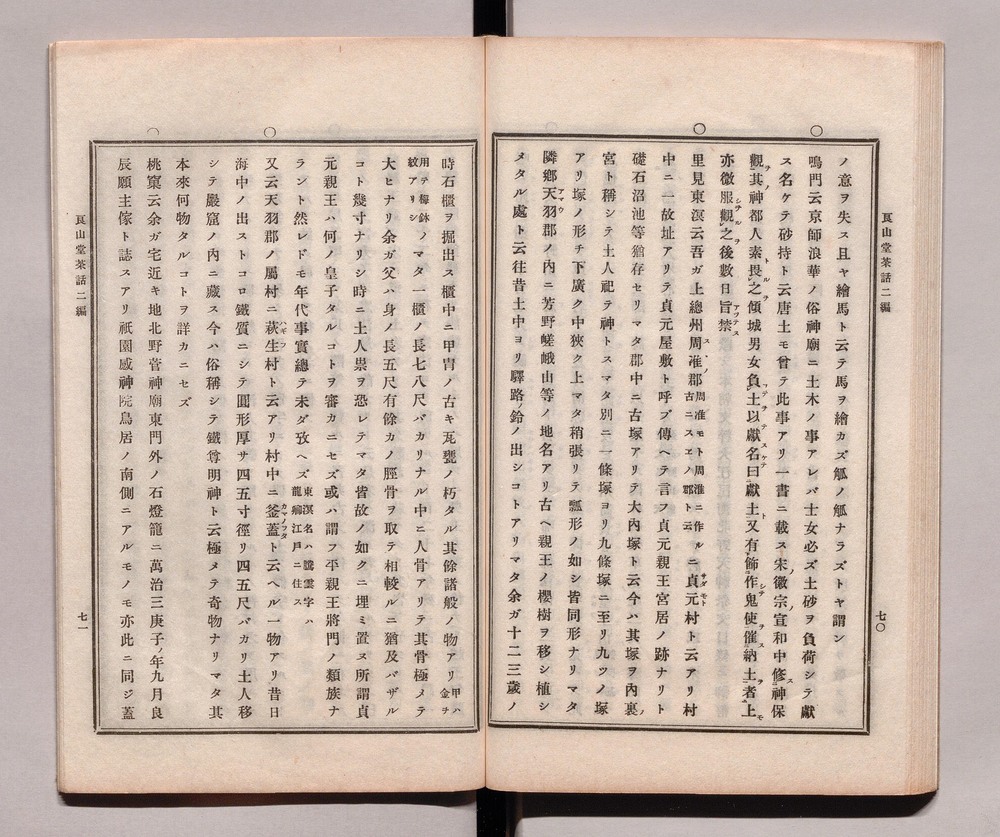 瓦山堂茶話二編
七〇
ノ意ヲ失ス且ャ繪馬ト云テ馬ヲ繪カズ觚ノ觚ナラズトヤ謂ン
鳴門云京師浪華ノ俗神廟ニ土木ノ事アレバ士女必ズ土砂ヲ負荷シテ獻
ス名ケテ砂持ト云唐土モ曾テ此事アリ一書ニ載ス宋徽宗ノ宣和中修ス神保
觀ヲ其ノ神都人素畏ル之ヲ傾城男女負テ土ヲ以テ獻ス名ケテ曰獻土ト又有飾シテ作鬼使ヲ催ス納土ヲ者上モ
亦微服シテ觀ル之ヲ後數日旨アツテ禁ス
里見東溟云吾ガ上總州周准郡周准モト周淮ニ作ル古ニスヱノ郡ト云ニ貞元村ト云アリ村
中ニ一故址アリテ貞元屋敷ト呼ブ傳ヘテ言フ貞元親王宮居ノ跡ナリト
礎石沼池等猶存セリマタ郡中ニ古塚アリテ大內塚ト云今ハ其塚ヲ內裏ノ
宮ト稱シテ土人祀テ神トスマタ別ニ一條塚ヨリ九條塚ニ至リ九ツノ塚
アリ塚ノ形チ下廣ク中狹ク上マタ稍張リテ瓢形ノ如シ皆同形ナリマタ
隣鄕天羽郡ノ內ニ芳野嵯峨山等ノ地名アリ古ヘ親王ノ櫻樹ヲ移シ植シ
メタル處ト云往昔土中ヨリ驛路ノ鈴ノ出シコトアリマタ余ガ十二三歲ノ
時石櫃ヲ掘出ス櫃中ニ甲冑ノ古キ瓦甕ノ朽タル其餘諸般ノ物アリ甲ハ金チ
用テ梅鉢ノ紋アリシマタ一櫃ノ長七八尺バカリナル中ニ人骨アリテ其骨極メテ
大ヒナリ余ガ父ハ身ノ長五尺有餘カノ脛骨ヲ取テ相較ルニ猶及バザル
コト幾寸ナリシ時ニ土人祟ヲ恐レテマタ皆故ノ如クニ埋ミ置ヌ所謂貞
元親王ハ何ノ皇子タルコトヲ審カニセズ或ハ謂フ平親王將門ノ類族ナ
ラント然レドモ年代事實總テ未ダ攷ヘズ東溟名ハ騰雲字ハ龍江戶ニ住ス
又云天羽郡ノ屬村ニ萩生村ト云アリ村中ニ釜蓋ト云ヘル一物アリ昔日
海中ノ出ストコロ鐵質ニシテ圓形厚サ四五寸徑リ四五尺バカリ土人移
シテ巖窟ノ內ニ藏ス今ハ俗稱シテ鐵尊明神ト云極メテ奇物ナリマタ其
本來何物タルコトヲ詳カニセズ
桃窠云余ガ宅近キ地北野菅神廟東門外ノ石燈籠ニ萬治三庚子ノ年九月良
辰願主傢ト誌スアリ祇園感神院鳥居ノ南側ニアルモノモ亦此ニ同ジ蓋
瓦山堂茶話二編
七一